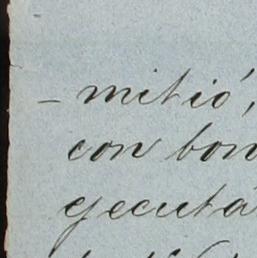 - mitió,
con bon
ejecuta